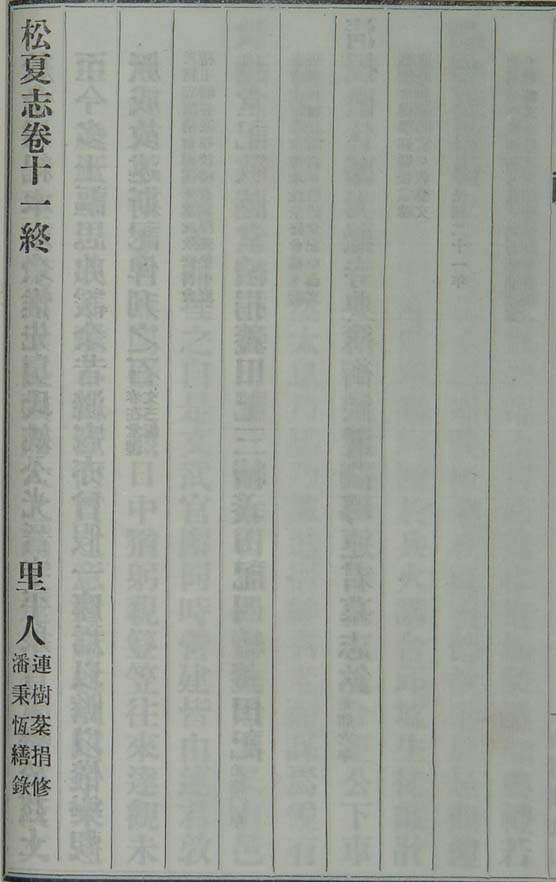 松夏志卷十一終
里人
連樹棻捐修
潘秉恆繕錄